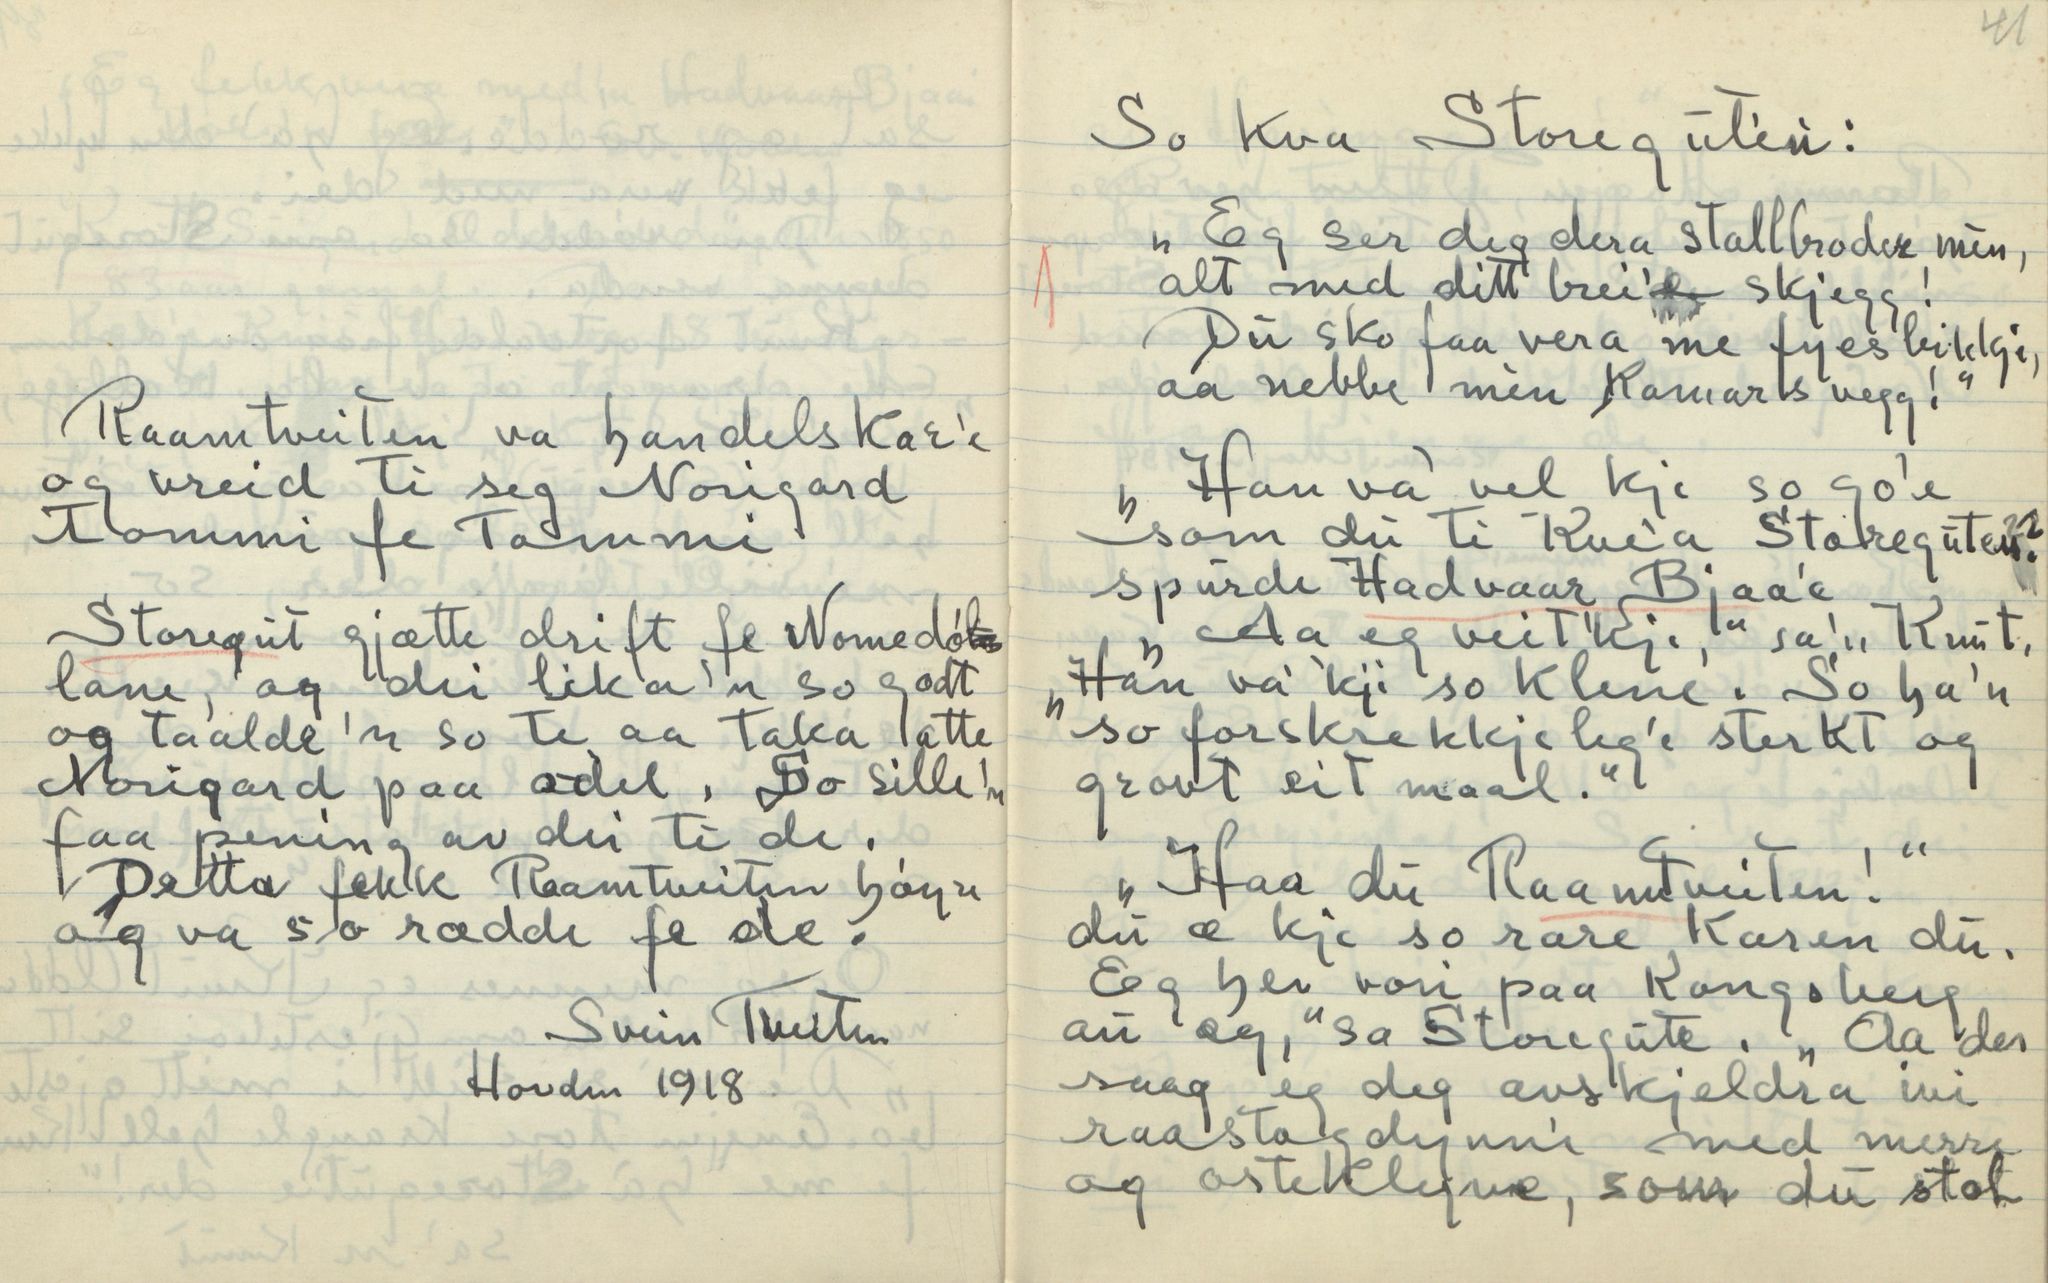 Raamtveiten va handelskar'e
og vreid ti seg Norigard
Tommi fe Tommi
Storegut gjætte drift fe Nomedóls
lane, og dei lika'n so godt
og taalde'n so te aa taka atte
Norigard paa odel. So sille'n
faa pening av dei ti de.
Detta fekk Raamtveiten høyre
og va so rædde fe de.
Svein Tveiten
Hovden 1918
41
So kva Storegúten:
„Eg ser deg dera stallbroder min,
alt med ditt brei'e skjegg!
Dú sko faa vera me fyesbikkje,
aa nebbe min kamarsvegg!"
„Han va vel kje so go'e
„som dú ti kve'a Storegúten?"
spúrde Hadvaar Bjaa'e
„Aa eg veit'kje," sa'n Knút,
„Han va 'kji so klene. So ha'n
„so forskrekkjeleg'e sterkt og
grovt eit maal."
„Haa dú Raamtveiten!"
dú æ kje so rare karen dú.
Eg hev vori paa Kongsberg
aú eg," sa Storegúte. „Aa der
saag eg deg avskjeldra ivi
raastogdynni med merre
og osteklyvne, som dú stal